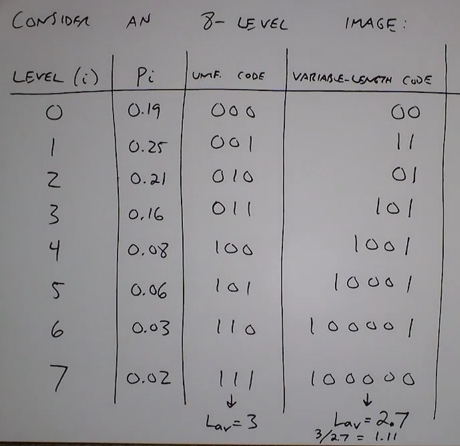 CONSIDER AN 8-LEVEL IMAGE:
LEVEL (i) Pi UNIF. CODE VARIABLE-LENGTH CODE
0 0.19 000 00
1 0.25 001 11
2 0.21 010 01
3 0.16 011 101
4 0.08 100 1001
5 0.06 101 10001
6 0.03 110 100001
7 0.02 111 100000
↓ ↓
Lav=3 Lav=2.7
3/27 = 1.11